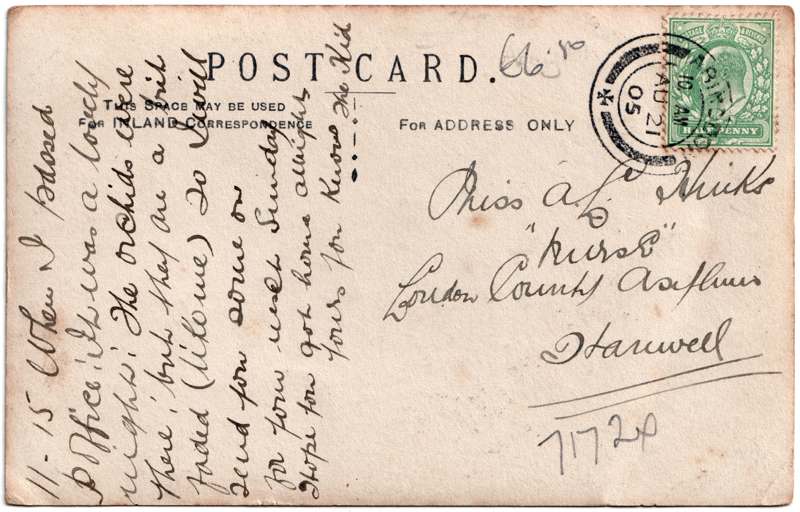 POST CARD.
THIS SPACE MAY BE USED
FOR INLAND CORRESPONDENCE
FOR ADDRESS ONLY
AU 21
05
HALFPENNY
Miss A. L. Hinks
"Nurse"
London County Asylum
Hanwell
7172
11-15 When I passed
P Office! It was a lovely
night! The orchids were
there! but they are a bit
faded (like me) so I will
send you some on
for your next Sunday
I hope you got home allright
Yours you know The Kid